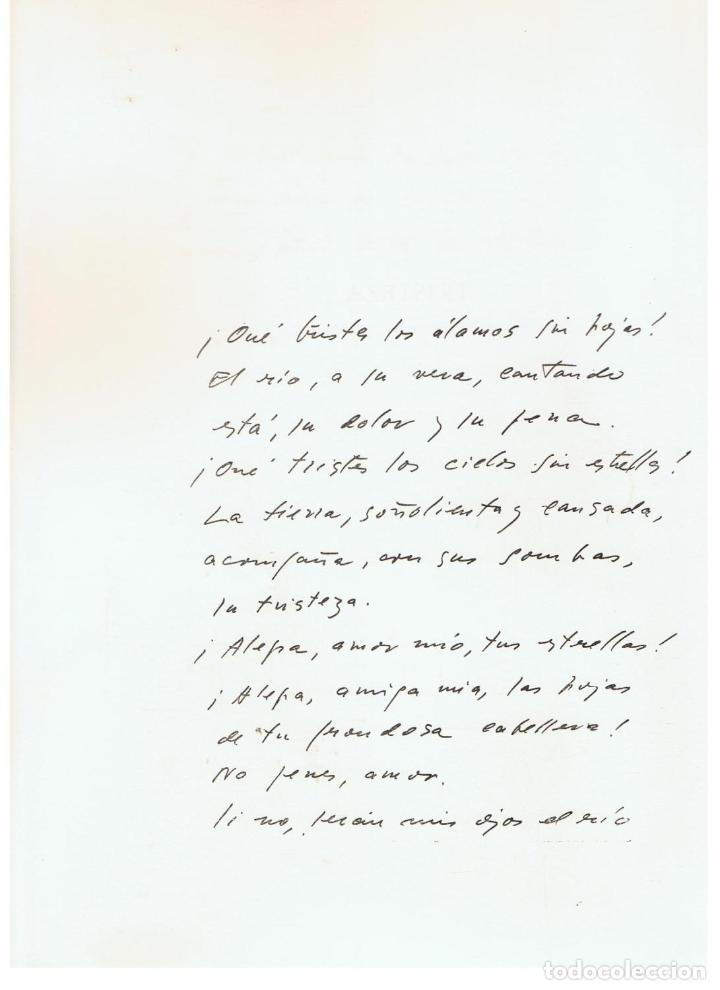 ¡Qué tristes los álamos sin hojas!
El río, a su vera, cantando
está, su dolor y su pena.
¡Qué tristes los cielos sin estrellas!
La tierra, soñolienta y cansada,
acompaña, con sus sombras,
su tristeza.
¡Alegra, amor mío, tus estrellas!
¡Alegra, amiga mia, las hojas
de tu frondosa cabellera!
No penes, amor.
Si no, serán mis ojos el río
todocoleccion